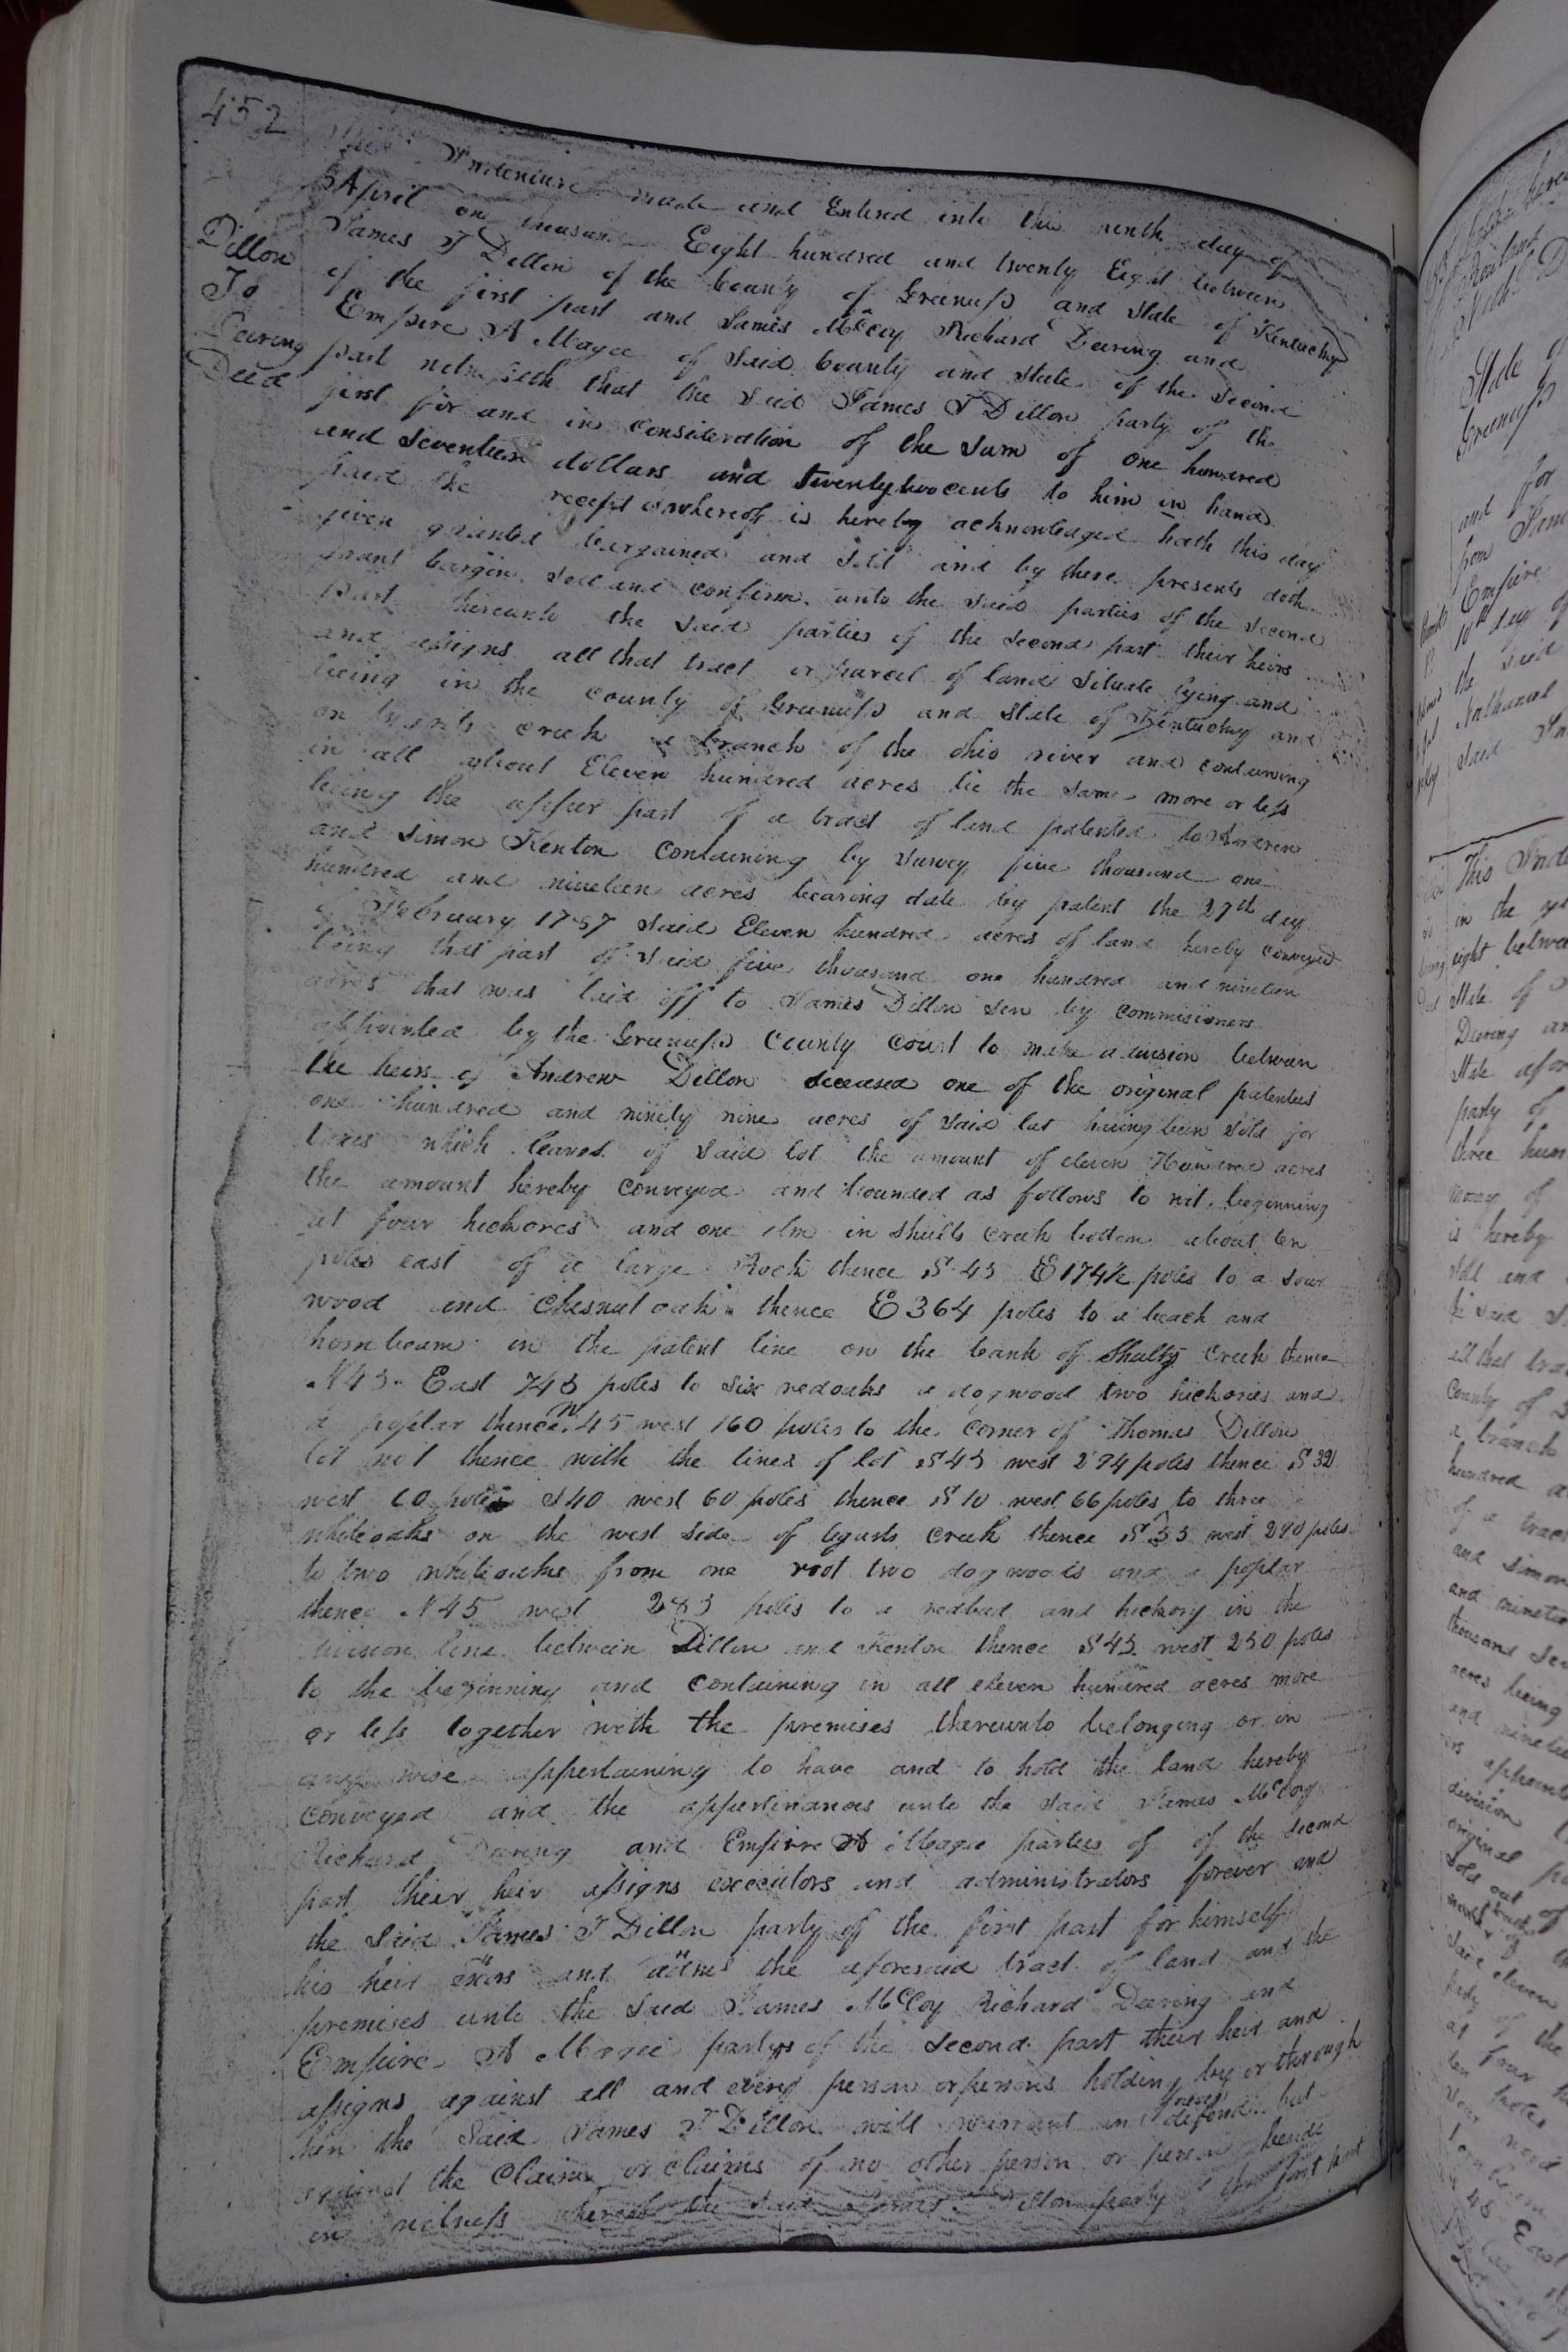 452
This Indenture made and Entered into this ninth day of
April one thousand Eight hundred and twenty Eight between
James T Dillon of the County of Greenup and State of Kentucky
of the first part and James McCoy Richard Deering and
Empire A Magee of Said County and State of the Second
part witnesseth that the Said James T Dillon party of the
first for and in consideration of the Sum of one hundred
and Seventeen dollars and twentytwo cents to him in hand
paid the receipt whereof is hereby acknowledged hath this day
given granted bargained and Sold and by these presents doth
grant bargin Sell and confirm unto the Said parties of the Second
part hereunto the Said parties of the Second part their heirs
and assigns all that tract or parcel of land Situate lying and
being in the County of Greenup and State of Kentucky and
on creek a branch of the ohio river and containing
in all about Eleven hundred acres be the Same more or less
being the upper part of a tract of land patented to Andrew
and Simon Kenton Containing by Survey five thousand one
hundred and nineteen acres bearing date by patent the 27th day
of February Said Eleven hundred acres of land hereby conveyed
being that part of Said five thousand one hundred and nineteen
acres that was laid off to James Dillon Sen by commisioners
appointed by the Greenup County Court to make a division between
the heirs of Andrew Dillon deceased one of the original patentees
one hundred and ninety nine acres of Said lot having been Sold for
taxes which leaves of Said lot the amount of eleven Hundred acres
the amount hereby conveyed and bounded as follows to wit. beginning
at four hickores and one elm in Shults Creek bottom about ten
poles east of a large Rock thence S 45 E 174½ poles to a Sour
wood and Chesnut oak thence E 364 poles to a beach and
hornbeam in the patent line on the bank of Shults Creek thence
N 45 East 745 poles to Six redoaks a dogwood two hickories and
a poplar thence N 45 west 160 poles to the Corner of Thomas Dillon
lot no 1 thence with the lines of lot S 45 west 294 poles thence S 32
west 60 poles S 40 west 60 poles thence S 10 west 66 poles to three
whiteoaks on the west Side of Creek thence S 55 west poles
to two whiteoaks from one root two dogwoods and a poplar
thence N 45 west 283 poles to a redbud and hickory in the
division line between Dillon and Kenton thence S 45 west 250 poles
to the beginning and Containing in all eleven hundred acres more
or less together with the premises thereunto belonging or in
any wise appertaining to have and to hold the land hereby
Conveyed and the appertinances unto the Said James McCoy
Richard Deering and Empire A Magee parties of of the Second
part their heir assigns executors and administrators forever and
the Said James T Dillon party of the first part for himself
his heir exors and adms the aforesaid tract of land and the
premises unto the Said James McCoy Richard Deering and
Empire A Magee partys of the Second part their heir and
assigns against all and every person or persons holding by or through
him the Said James T Dillon will warrant an forever defend but
against the Claim or claims of no other person or person beside
in witness whereof the Said James T Dillon party of the first part
Dillon
To
Deering
Deed
State of
Greenup
and for
from
Empire
10th day of
the said
Nathanial
Said
This Inde
in the ye
eight betwee
State of
Deering an
State afor
party of
three hun
money of
is hereby
Sold and
the Said
all that trac
County of
a branch
hundred a
of a trac
and Simon
and ninetee
thousand Se
acres being
and ninetee
division
original pa
Sold out of
Said eleven
of the
at four h
ten poles
Sour wood
hornbeam
45 East